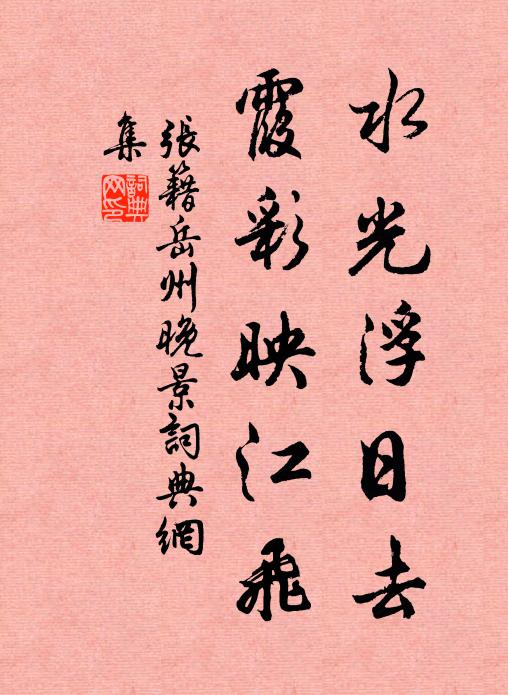 水光浮日去
霞彩映江飛
張籍岳州晚景詞典網
集
詞典
网印